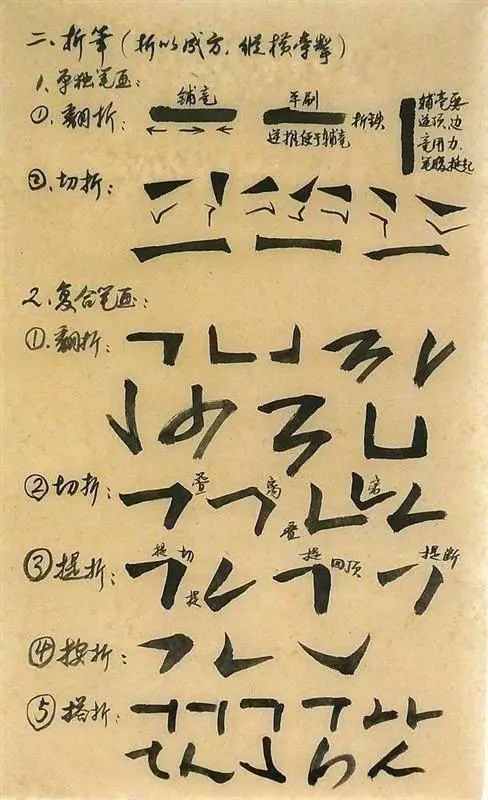 二、折笔（折以成方，纵横牵掣）
1、单独笔画：
①、翻折：
铺毫
平刷
折铁
逆推便于铺毫
铺毫要
逆顶、边
毫用力、
笔腹挺起
②、切折：
2、复合笔画：
①、翻折：
②切折：
叠
离
叠
离
③提折：
提
切
提
提
回顶
提断
④按折：
⑤搭折：